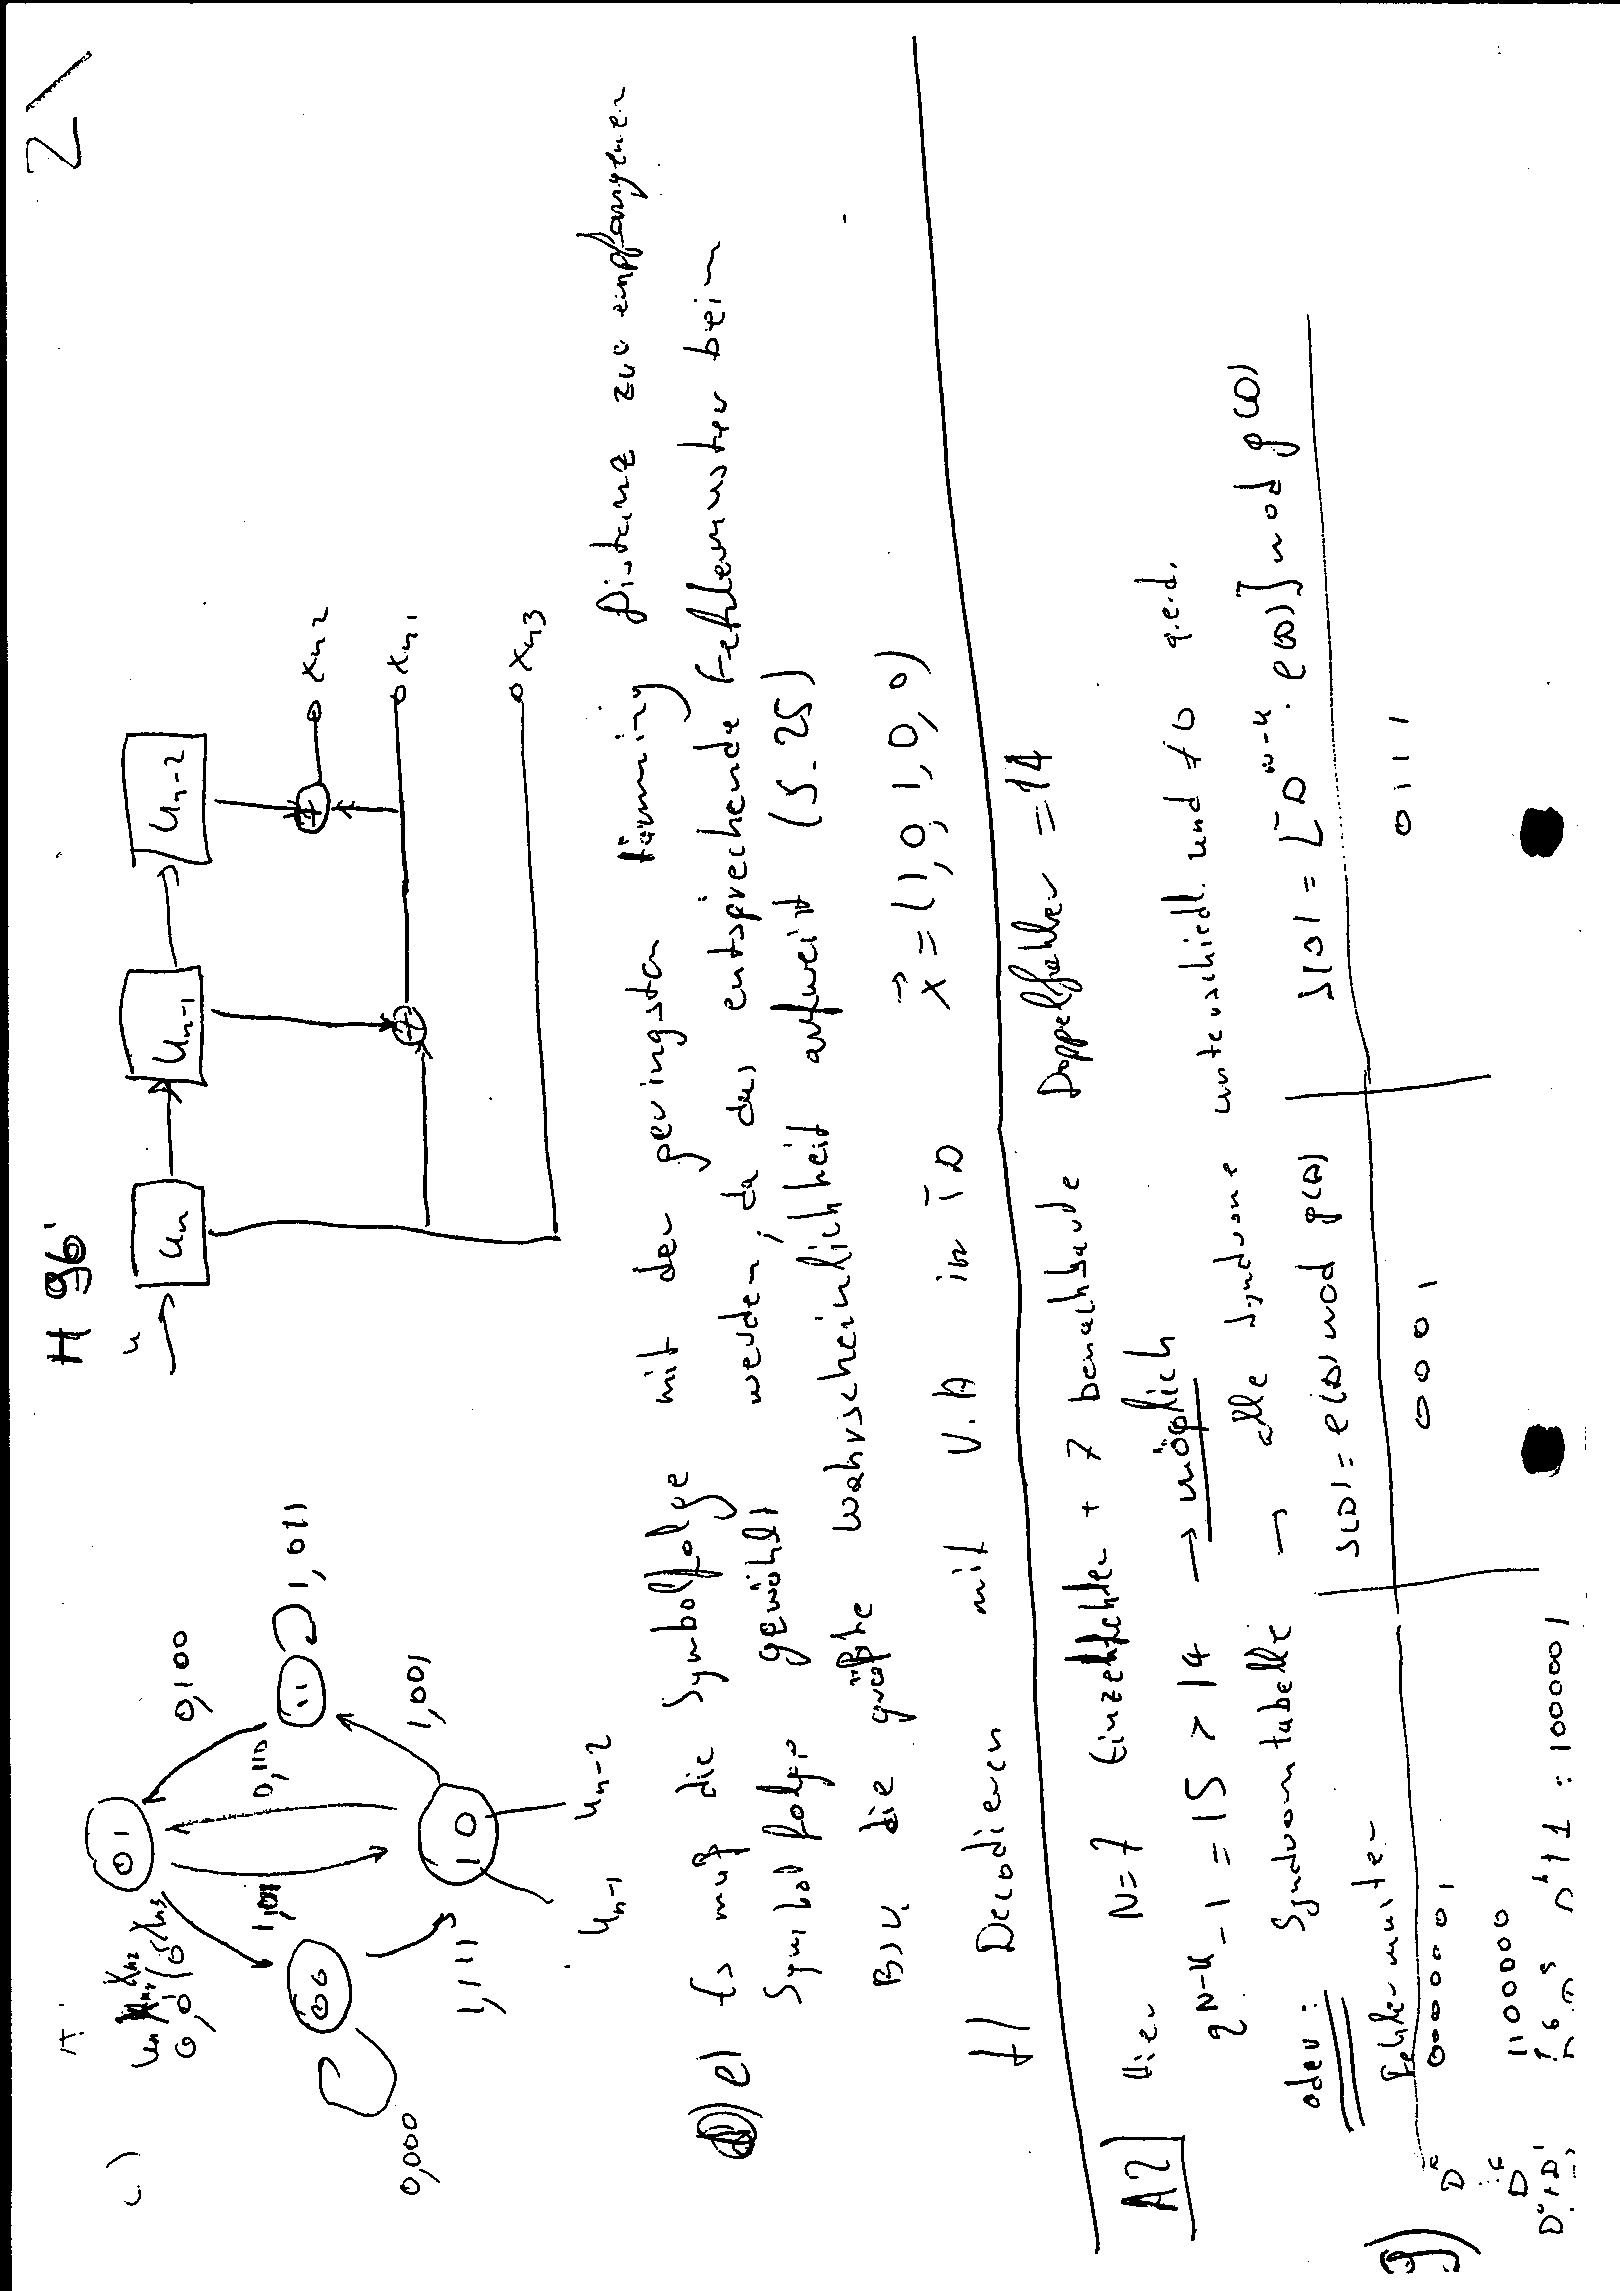 H 96'
2)
c)
u
un
un-1
un-2
xn2
xn1
xn3
0,000
00
01
10
11
0,100
0,110
1,001
1,111
1,011
un-1
un-2
e) Es muß die Symbolfolge mit der geringsten Hamming Distanz zur empfangenen
Symbolfolge gewählt werden, da das entsprechende Fehlermuster beim
BSK die größte Wahrscheinlichkeit aufweist (S. 25)
f) Decodieren mit V.A in TD x = (1,0,1,0,0)
A2) Hier N=7 Einzelfehler + 7 benachbarte Doppelfehler = 14
2^N-k - 1 = 15 > 14 → möglich
oder: Syndromtabelle → alle Syndrome unterschiedl. und ≠ 0 q.e.d.
Fehlermuster s(D) = e(D) mod g(D) s(D) = [D^n-k · e(D)] mod g(D)
0000001 0001 0111
1100000
: 1000001